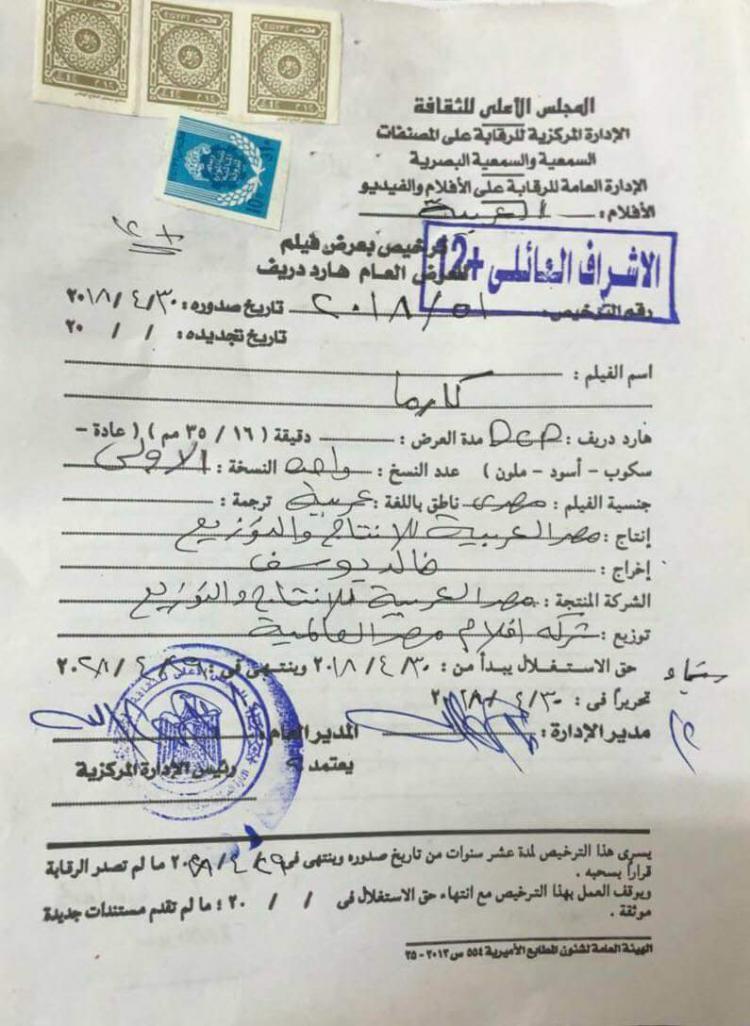 المجلس الأعلى للثقافة
الإدارة المركزية للرقابة على المصنفات
السمعية والسمعية البصرية
الإدارة العامة للرقابة على الأفلام والفيديو
الأفلام : العربية
+١٢
ترخيص بعرض فيلم
للعرض العام هارد دريف
الاشراف العائلى +12
رقم الترخيص : ٥١/٢٠١٨ تاريخ صدوره : ٣٠/٤/٢٠١٨
تاريخ تجديده : / / ٢٠
اسم الفيلم :
كارما
هارد دريف : DCP مدة العرض : دقيقة ( ١٦ / ٣٥ مم ) ( عادة -
سكوب - أسود - ملون ) عدد النسخ : واحدة النسخة : الاولى
جنسية الفيلم : مصرى ناطق باللغة : عربية ترجمة :
إنتاج : مصر العربية للانتاج والتوزيع
إخراج : خالد يوسف
الشركة المنتجة : مصر العربية للانتاج والتوزيع
توزيع : شركه افلام مصر العالمية
حق الاستغلال يبدأ من : ٣٠/٤/٢٠١٨ وينتهى فى : ٢٩/٤/٢٠٢٨
تحريراً فى : ٣٠/٤/٢٠١٨
مدير الإدارة : المدير العام :
يعتمد
رئيس الإدارة المركزية
يسرى هذا الترخيص لمدة عشر سنوات من تاريخ صدوره وينتهى فى ٢٩/٤/٢٠٢٨ ما لم تصدر الرقابة
قراراً بسحبه .
ويوقف العمل بهذا الترخيص مع انتهاء حق الاستغلال فى / / ٢٠ ؛ ما لم تقدم مستندات جديدة
موثقة .
الهيئة العامة لشئون المطابع الأميرية ٥٥٤ س ٢٠١٣ - ٢٥